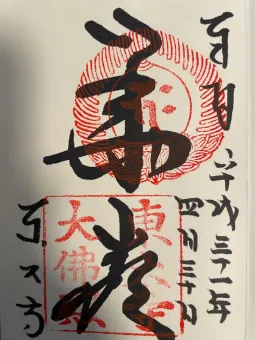 奉拝
平成三十一年
四月三十日
華厳
東大寺
東大寺
大佛殿